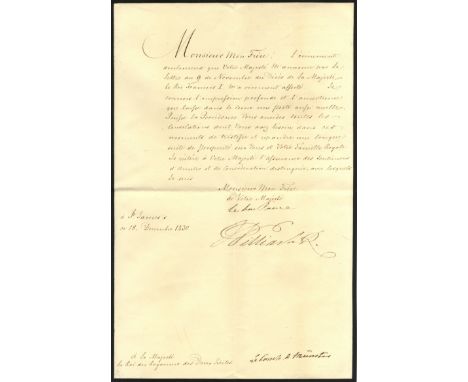 Monsieur Mon Frère! L'evenement
douloureux que Votre Majesté m'annonce par Sa
lettre du 9 de Novembre du Décès de Sa Majesté
le Roi François I. m'a vivement affecté. Je
connois l'impression profonde et l'amertume
que laisse dans le cœur une perte aussi cruelle.
Puisse la Providence Vous accorder toutes les
Consolations dont Vous avez besoin dans ces
moments de tristesse et répandre une longue
suite de prospérité sur Vous et Votre Famille Royale.
Je réitère à Votre Majesté l'assurance des Sentimens
d'amitié et de Consideration distinguée avec lesquels
Je suis
Monsieur Mon Frère
de Votre Majesté
le bon Frere
à St James's
ce 18. Decembre 1830
William R.
A Sa Majesté
le Roi du Royaume des Deux Siciles
Le Comte de Münster